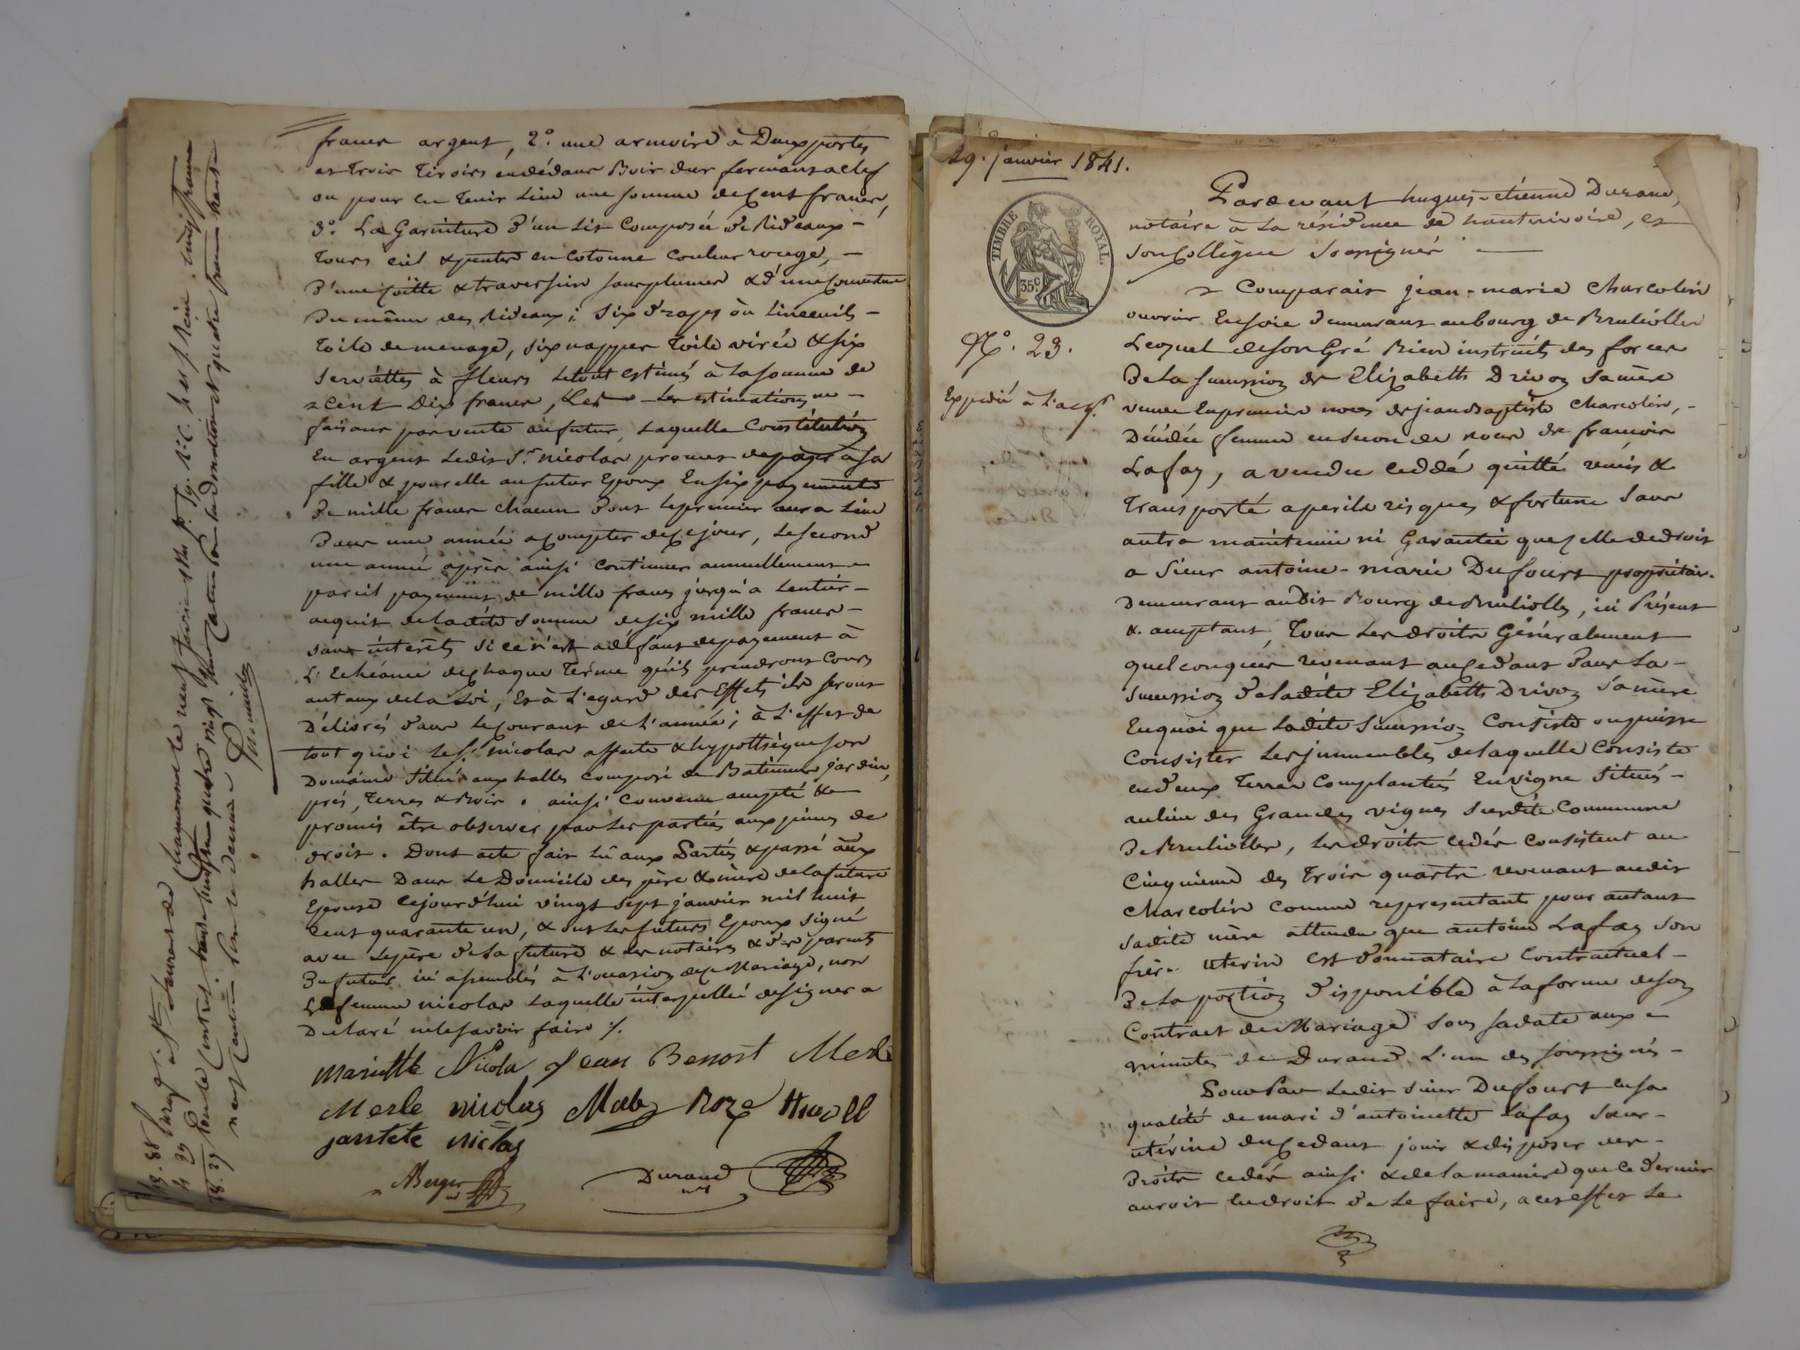 francs argent, 2.° une armoire à Deux portes
et trois tiroirs en dedans Bois dur fermant a clef
ou pour en tenir Lieu une somme de Cent francs,
3.° La Garniture d'un Lit Composée de Rideaux
tours ciel & pentes en cotonne Couleur rouge,
D'une & traversin sans plumes & d'une Couverture
Du même des Rideaux; Six draps ou Linceuils
toile de menage, six nappes toile & six
Serviettes à fleurs Le tout estimés à La somme de
Cent Dix francs, Les estimations ne
faisant pas vente au futur, Laquelle Constitution
En argent Ledit S.r nicolas promet de payer a sa
fille & pour elle au futur Epoux En six payements
De mille francs chacun Dont Le premier aura Lieu
Dans une année a compter de ce jour, Le second
une année après ainsi Continuer annuellement
pareil payement de mille francs jusqu'a Lentier
acquit de Ladite Somme de six mille francs
sans interêts Si ce n'est a défaut de payement à
L'Echéance de chaque terme qu'ils prendront Cours
au taux de la Loi, Et à L'egard des Effets ils seront
Délivrés dans Le Courant de L'année; à L'effet de
tout quoi Le S.r nicolas affecte & hypothèque son
Domaine Situé aux halles Composé de Batiments jardin,
prés, terres & Bois. ainsi Convenu accepté &
promis être observer par Les parties aux peines de
droit. Dont acte fait Lû aux Parties & passé aux
halles Dans Le Domicile des père & mère de La future
Epouse Cejourd'hui vingt sept janvier mil huit
Cent quarante un, & ont Les futurs Epoux Signé
avec Le père de La future & Les notaires & des parents
Du futur ici assemblés à L'occasion de ce Mariage, non
La femme nicolas Laquelle interpellée de signer a
Déclaré ne le savoir faire /.
Mariette Nicola Jean Benoit Merle
Merle nicolas Roze
nicolas
Berger Durand
n.re
Enreg. à S.t Laurent de Chamousset le neuf février 1841
29. janvier 1841.
TIMBRE ROYAL.
35c
N.° 23.
Expedié à L'acq.r
Pardevant hugues-etienne Durand,
notaire à La résidence de hauterivoire, et
Son Collègue Soussignés
Comparait jean-marie Charcolin
ouvrier En soie demeurant au bourg de Brulliolles
Lequel de son Gré Bien instruits des forces
De La Succession de Elizabeth Drivon Sa mère
veuve En premier noces de jean Baptiste Charcolin,
Décédée femme en seconde noces de francois
Lafay, a vendu cedé quitté remis &
transporté a perils risques & fortune Sans
autre maintenue ni Garantie que celle de droit
a Sieur antoine-marie Dufourt propriétaire.
Demeurant audit Bourg de Brulliolles, ici Présent
& acceptant, tous Les droits Généralement
quelconques revenant au Cedant Dans La
Succession de Ladite Elizabeth Drivon Sa mère
En quoi que Ladite Succession Consiste ou puisse
Consister Les immeubles de Laquelle Consiste
en deux terres Complantées En vigne Situés
au lieu des Grandes vignes Susdite Commune
De Brulliolles, Les droits cedés Consistent au
Cinquième des trois quarts revenant audit
Charcolin Comme representant pour autant
Sadite mère attendu que antoine Lafay Son
frère uterin est donnataire Contractuel
De La portion disponible à La forme de son
Contract de Mariage Sous Sa date aux
minutes de Durand L'un des soussignés
Pour Par Ledit Sieur Dufourt en sa
qualité de mari d'antoinette Lafay Sœur
utérine du Cedant jouir & disposer des
Droits cedés ainsi & de La manière que Ce dernier
auroit eu droit de Le faire, a cet effet Le